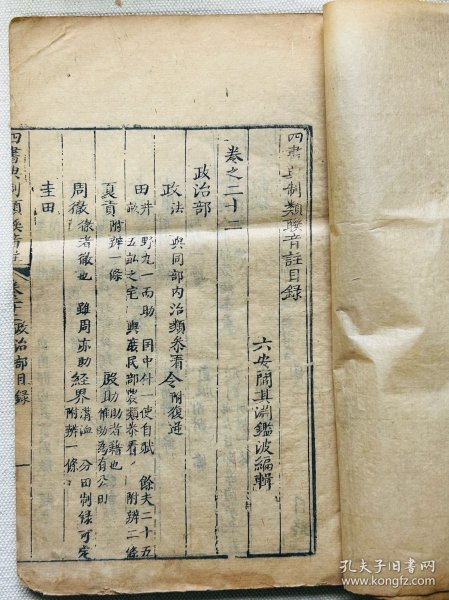 四書典制類聯音註目錄
六安閻其淵鑑波編輯
卷之二十二
政治部
政法 與同部內治類叅看 令 附復逆
田井 野九一而助 國中什一使自賦 餘夫二十五
畝 五畝之宅 與庶民部農類叅看 附辨二條
夏貢 附辨一條 殷助 助者藉也 惟助為有公田
周徹 徹者徹也 雖周亦助 經界 溝洫 分田制祿可定
附辨一條
圭田
四書典制類聯音註 卷二十二 政治部目錄
孔夫子旧书网
www.kongfz.com